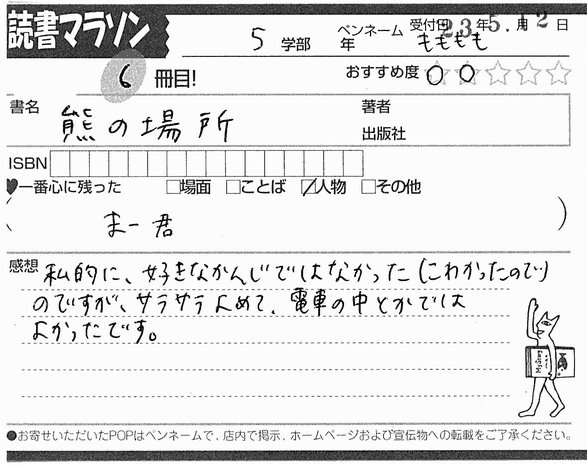 読書マラソン
5 学部 年 ペンネーム ももももも 受付日 23年5.月12日
6 冊目! おすすめ度 ○○☆☆☆
書名 熊の場所 著者
出版社
ISBN
♥一番心に残った □場面 □ことば ☑人物 □その他
( まー君 )
感想 私的に、好きなかんじではなかった(こわかったので)
のですが、サラサラよめて、電車の中とかでは
よかったです。
●お寄せいただいたPOPはペンネームで、店内で掲示、ホームページおよび宣伝物への転載をご了承ください。